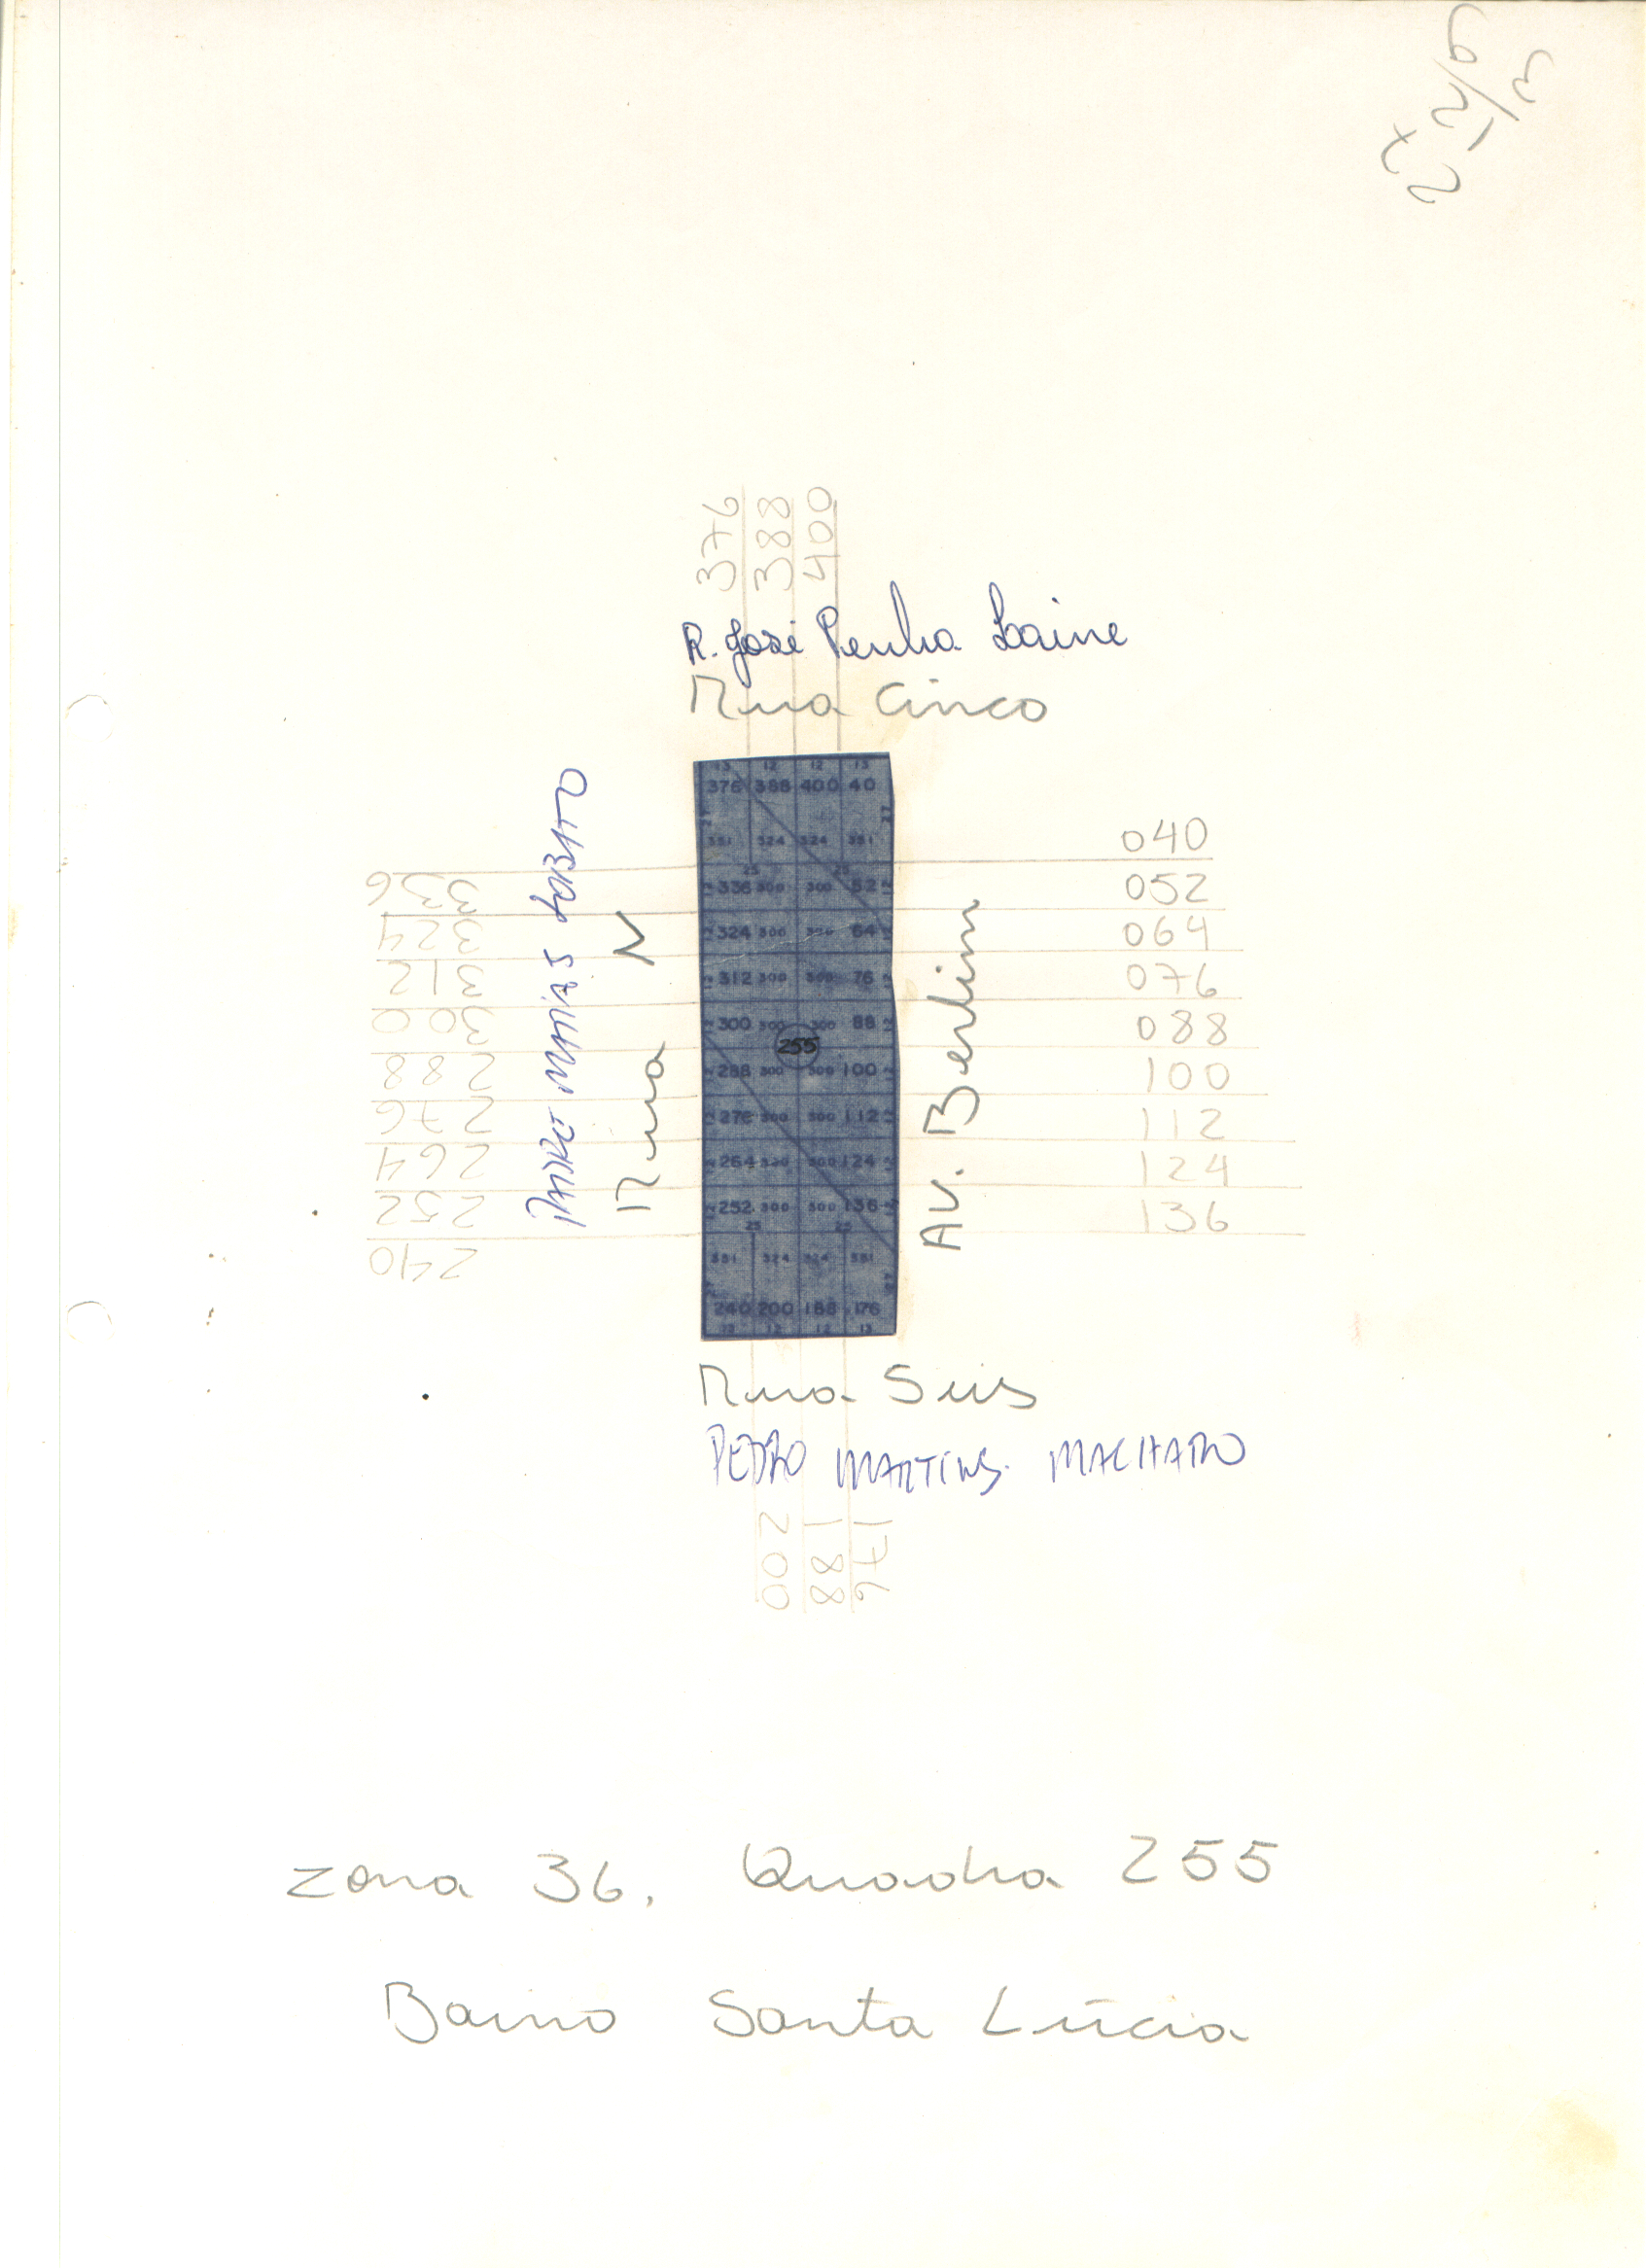 376
388
400
R. José Penha Laine
Rua Cinco
13 12 12 13
376 388 400 40
27 27
351 324 324 351
25 25
336 300 300 52
324 300 300 64
312 300 300 76
300 300 300 88
255
288 300 300 100
276 300 300 112
264 300 300 124
252 300 300 136
25 25
351 324 324 351
27 27
240 200 188 176
13 12 12 13
336
324
312
300
288
276
264
252
240
PADRE MATIAS LOBATO
Rua N
Av. Berlim
040
052
064
076
088
100
112
124
136
Rua Seis
PEDRO MARTINS MACHADO
200
188
176
Zona 36. Quadra 255
Bairro Santa Lúcia